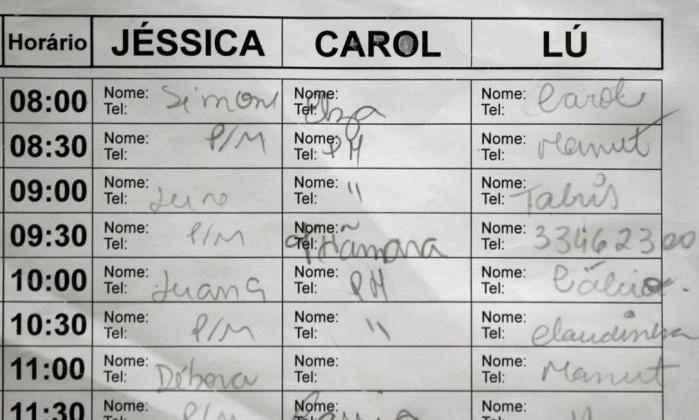 Horário JÉSSICA CAROL LÚ
08:00 Nome: Simone Nome: Elza Nome: Carol
Tel: Tel: Tel:
08:30 Nome: P/M Nome: PM Nome: Manut
Tel: Tel: Tel:
09:00 Nome: Nome: " Nome:
Tel: Tel: Tel:
09:30 Nome: P/M Nome: Nome: 33462320
Tel: Tel: Tel:
10:00 Nome: Luana Nome: PM Nome:
Tel: Tel: Tel:
10:30 Nome: P/M Nome: " Nome: Claudinha
Tel: Tel: Tel:
11:00 Nome: Débora Nome: Nome: Manut
Tel: Tel: Tel:
11:30 Nome: P/M Nome: Nome: